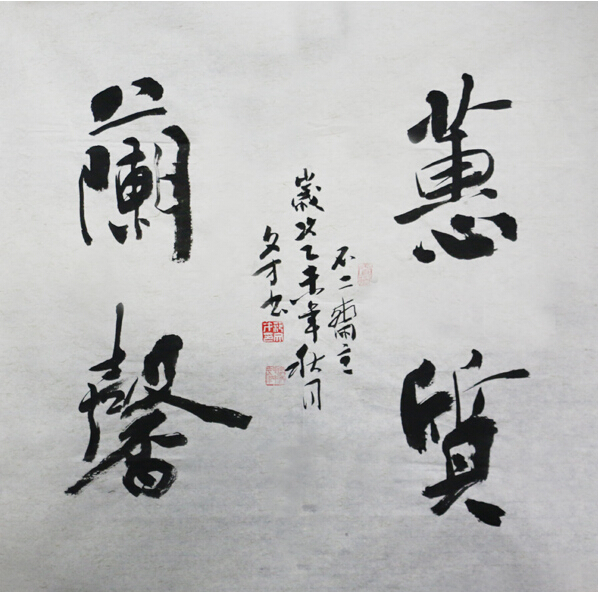 蕙質
蘭馨
不二齋主
歲次乙未年秋月
文才书